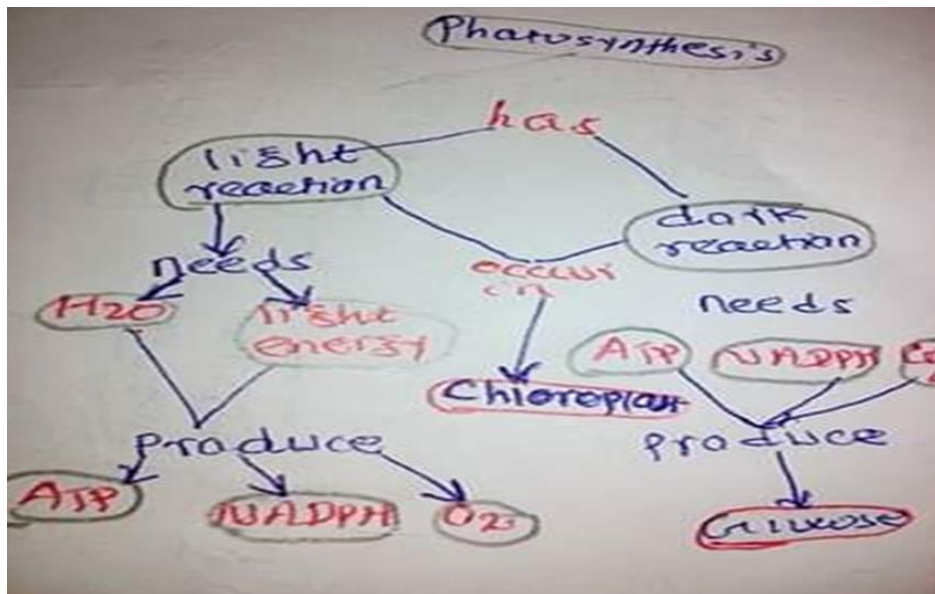 Photosynthesis
has
light
reaction
dark
reaction
needs
occur
in
needs
H2O
light
energy
ATP
NADPH
Chloroplast
produce
produce
ATP
NADPH
O2
Glucose